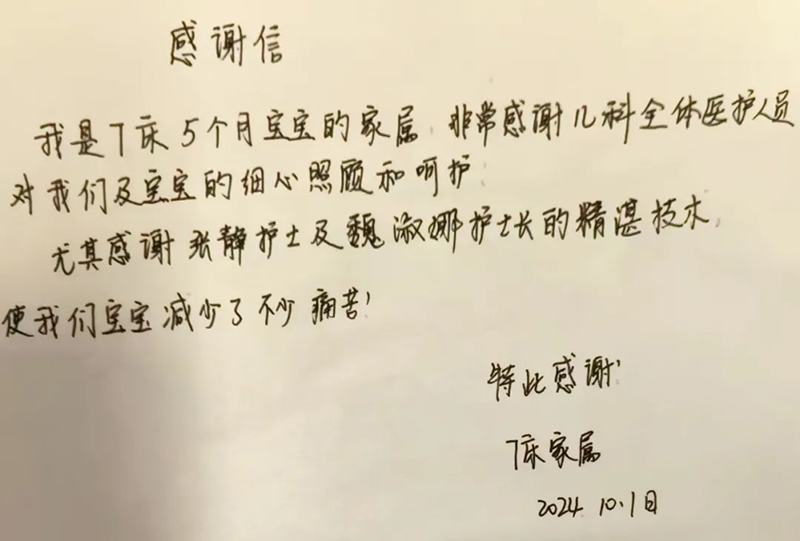 感谢信
我是7床5个月宝宝的家属,非常感谢儿科全体医护人员
对我们及宝宝的细心照顾和呵护.
尤其感谢张静护士及魏淑娜护士长的精湛技术,
使我们宝宝减少了不少痛苦!
特此感谢!
7床家属
2024.10.1日